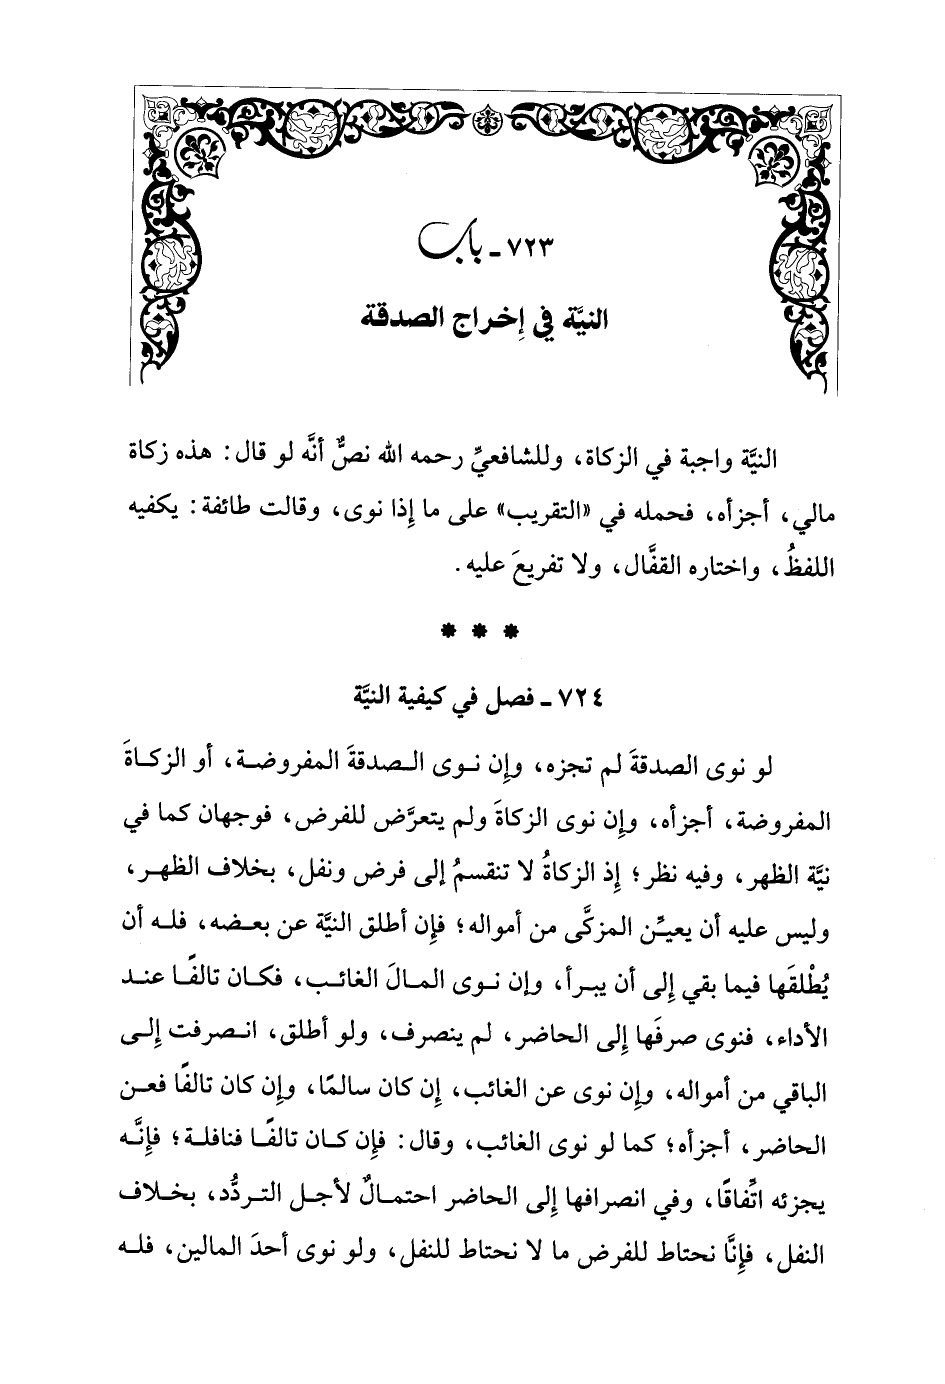 ٧٢٣ - باب
النيَّة في إخراج الصدقة
النيَّة واجبة في الزكاة، وللشافعيِّ رحمه الله نصٌّ أنَّه لو قال: هذه زكاة
مالي، أجزأه، فحمله في «التقريب» على ما إذا نوى، وقالت طائفة: يكفيه
اللفظُ، واختاره القفَّال، ولا تفريعَ عليه.
* * *
٧٢٤ - فصل في كيفية النيَّة
لو نوى الصدقةَ لم تجزه، وإن نوى الصدقةَ المفروضة، أو الزكاةَ
المفروضة، أجزأه، وإن نوى الزكاةَ ولم يتعرَّض للفرض، فوجهان كما في
نيَّة الظهر، وفيه نظر؛ إذ الزكاةُ لا تنقسمُ إلى فرض ونفل، بخلاف الظهر،
وليس عليه أن يعيِّن المزكَّى من أمواله؛ فإن أطلق النيَّة عن بعضه، فله أن
يُطْلقَها فيما بقي إلى أن يبرأ، وإن نوى المالَ الغائب، فكان تالفًا عند
الأداء، فنوى صرفَها إلى الحاضر، لم ينصرف، ولو أطلق، انصرفت إلى
الباقي من أمواله، وإن نوى عن الغائب، إن كان سالمًا، وإن كان تالفًا فعن
الحاضر، أجزأه؛ كما لو نوى الغائب، وقال: فإن كان تالفًا فنافلة؛ فإنَّه
يجزئه اتِّفاقًا، وفي انصرافها إلى الحاضر احتمالٌ لأجل التردُّد، بخلاف
النفل، فإنَّا نحتاط للفرض ما لا نحتاط للنفل، ولو نوى أحدَ المالين، فله